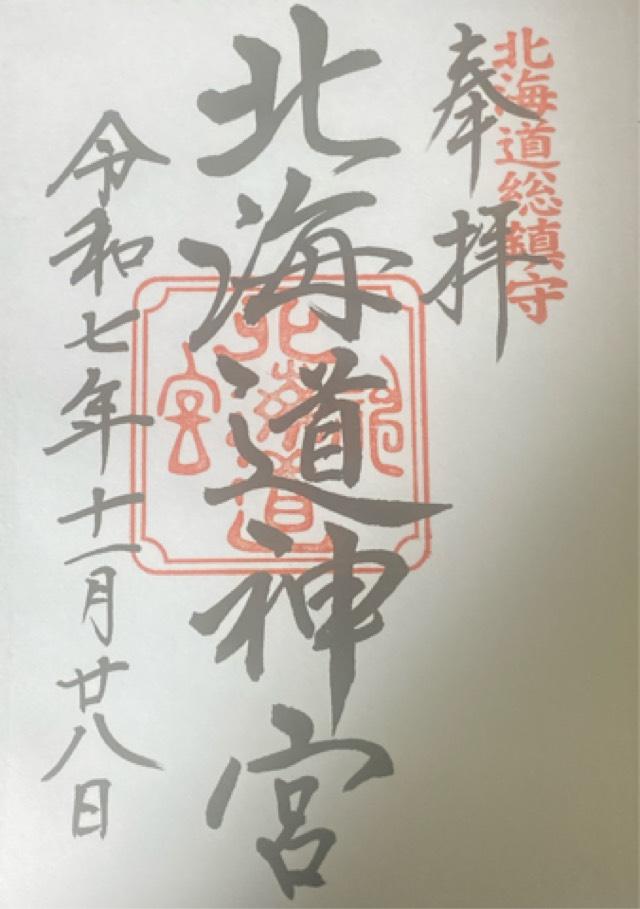 北海道総鎮守
奉拝
北海道神宮
北海道神宮
令和七年十一月廿八日